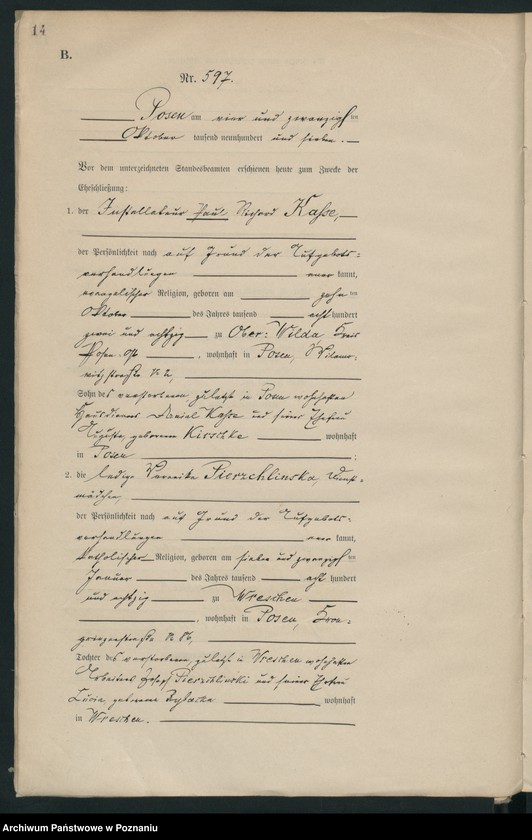 14
B.
Nr. 597.
Posen am vier und zwanzigsten
Oktober tausend neunhundert und sieben.
Vor dem unterzeichneten Standesbeamten erschienen heute zum Zwecke der
Eheschließung:
1. der Installateur Paul Richard Kasse,
der Persönlichkeit nach auf Grund der Aufgebots-
verhandlungen anerkannt,
evangelischer Religion, geboren am zehnten
Oktober des Jahres tausend acht hundert
zwei und achtzig zu Ober-Wilda Kreis
Posen Ost, wohnhaft in Posen,
Sohn des verstorbenen, zuletzt in Posen wohnhaften
Daniel Kasse und seiner Ehefrau
Auguste, geborene Kirschke wohnhaft
in Posen;
2. die ledige Veronika Pierzchlinska, Dienst-
mädchen,
der Persönlichkeit nach auf Grund der Aufgebots-
verhandlungen anerkannt,
katholischer Religion, geboren am sieben und zwanzigsten
Januar des Jahres tausend acht hundert
und achtzig zu Wreschen
, wohnhaft in Posen, Kron-
prinzenstraße
Tochter des verstorbenen, zuletzt in Wreschen wohnhaften
Arbeiters Josef Pierzchlinski und seiner Ehefrau
Lucia, geborene wohnhaft
in Wreschen.
Archiwum Państwowe w Poznaniu